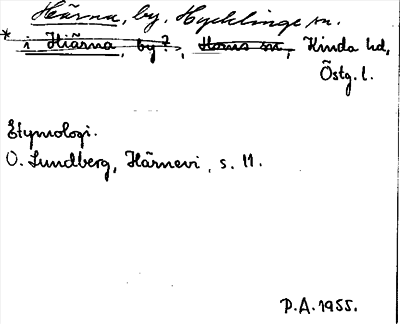 Hiärna, by, Hycklinge sn.
* i Hiärna, by?, Horns sn, Kinda hd,
Östg. l.
Etymologi.
O. Lundberg, Härnevi, s. 11.
P.A. 1955.